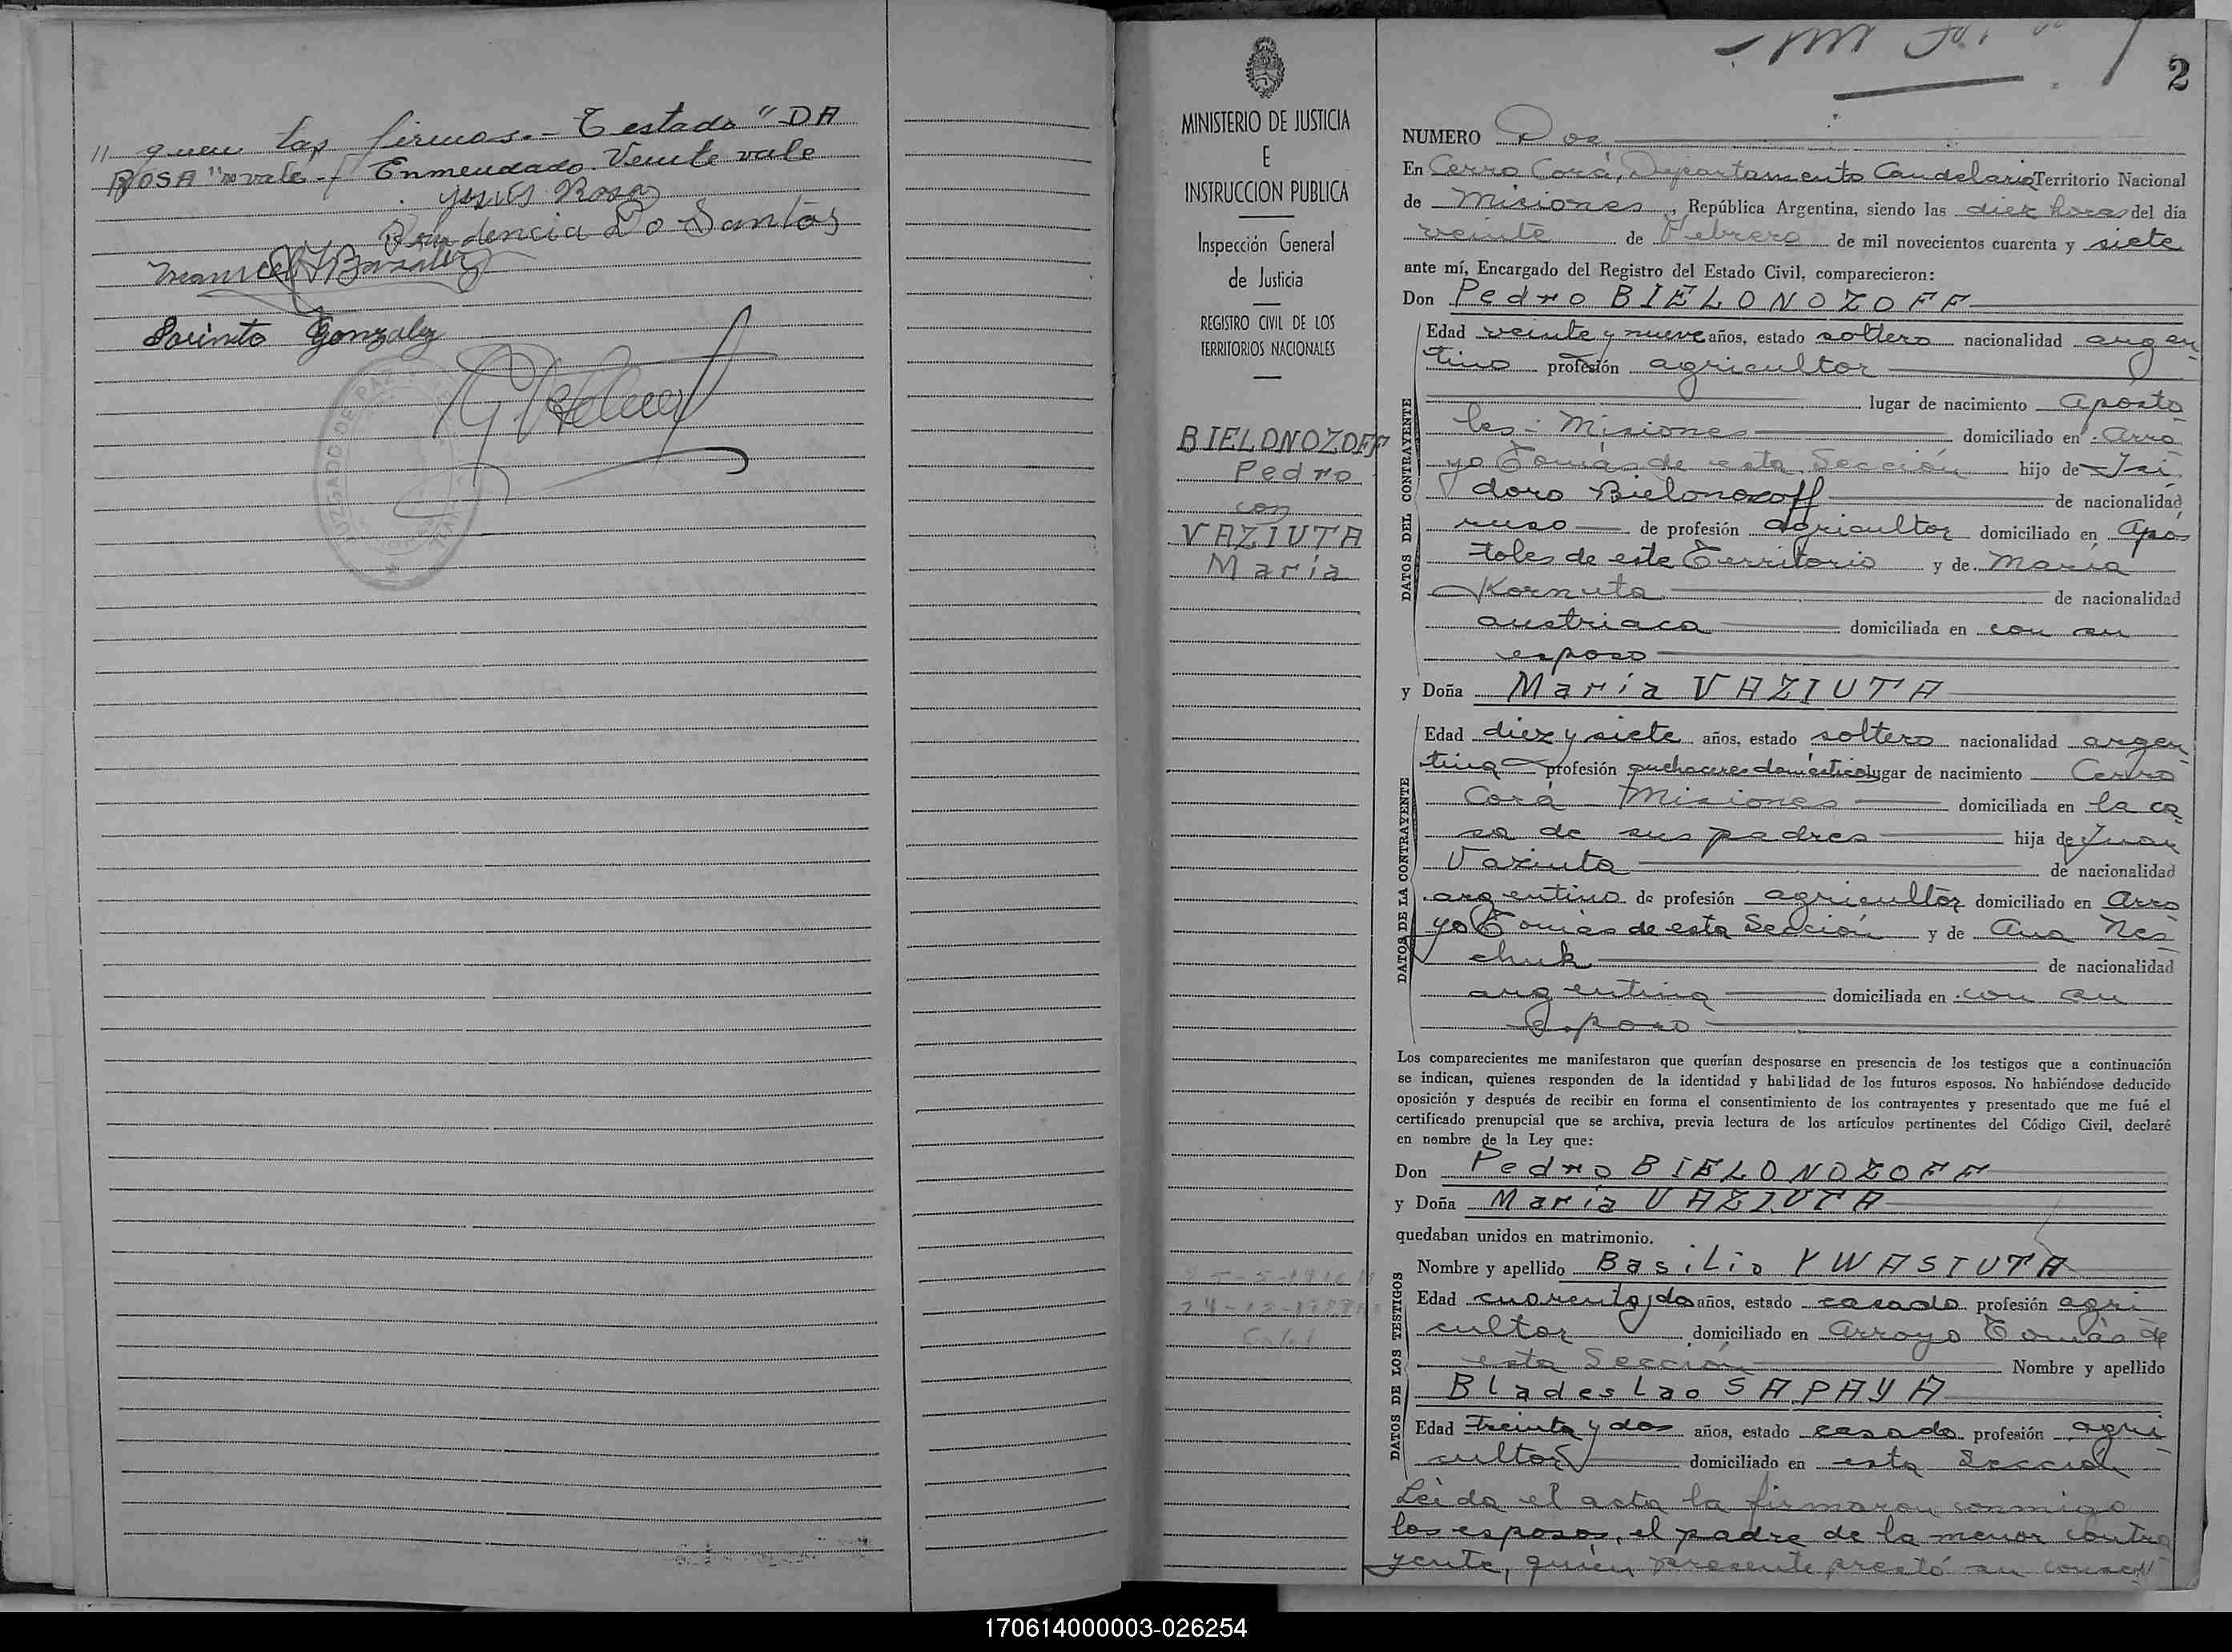 // quen las firmas.- Testado "DA
ROSA" no vale.- Enmendado Veinte vale
Jesús Rosa
Prudencia Do Santos
Manuel
Jacinto Gonzalez
JUZGADO DE PAZ
2
MINISTERIO DE JUSTICIA
E
INSTRUCCION PUBLICA
Inspección General
de Justicia
REGISTRO CIVIL DE LOS
TERRITORIOS NACIONALES
BIELONOZOFF
Pedro
con
VAZIUTA
María
NUMERO Dos
En Cerro Corá, Departamento Candelaria Territorio Nacional
de Misiones, República Argentina, siendo las diez horas del día
veinte de Febrero de mil novecientos cuarenta y siete
ante mí, Encargado del Registro del Estado Civil, comparecieron:
Don Pedro BIELONOZOFF
DATOS DEL CONTRAYENTE
Edad veinte y nueve años, estado soltero nacionalidad argen-
tino profesión agricultor
lugar de nacimiento Aposto
les - Misiones domiciliado en Arro
yo Tomás de esta Sección hijo de Isi
doro Bielonozoff de nacionalidad
ruso de profesión agricultor domiciliado en Apos
toles de este Territorio y de María
Kornuta de nacionalidad
austriaca domiciliada en con su
esposo
y Doña María VAZIUTA
DATOS DE LA CONTRAYENTE
Edad diez y siete años, estado soltera nacionalidad argen-
tina profesión quehaceres domésticos lugar de nacimiento Cerro
Corá - Misiones domiciliada en la ca-
sa de sus padres hija de Juan
Vaziuta de nacionalidad
argentino de profesión agricultor domiciliado en Arro
yo Tomás de esta Sección y de Ana Nes
chuk de nacionalidad
argentina domiciliada en con su
esposo
Los comparecientes me manifestaron que querían desposarse en presencia de los testigos que a continuación
se indican, quienes responden de la identidad y habilidad de los futuros esposos. No habiéndose deducido
oposición y después de recibir en forma el consentimiento de los contrayentes y presentado que me fué el
certificado prenupcial que se archiva, previa lectura de los artículos pertinentes del Código Civil, declaré
en nombre de la Ley que:
Don Pedro BIELONOZOFF
y Doña María VAZIUTA
quedaban unidos en matrimonio.
DATOS DE LOS TESTIGOS
Nombre y apellido Basilio YWASIUTA
Edad cuarenta y dos años, estado casado profesión agri
cultor domiciliado en Arroyo Tomás de
esta Sección Nombre y apellido
Bladeslao SAPAYA
Edad treinta y dos años, estado casado profesión agri-
cultor domiciliado en esta Sección
Leída el acta la firmaron conmigo
los esposos, el padre de la menor contra
yente, quien presente prestó su consen//
170614000003-026254